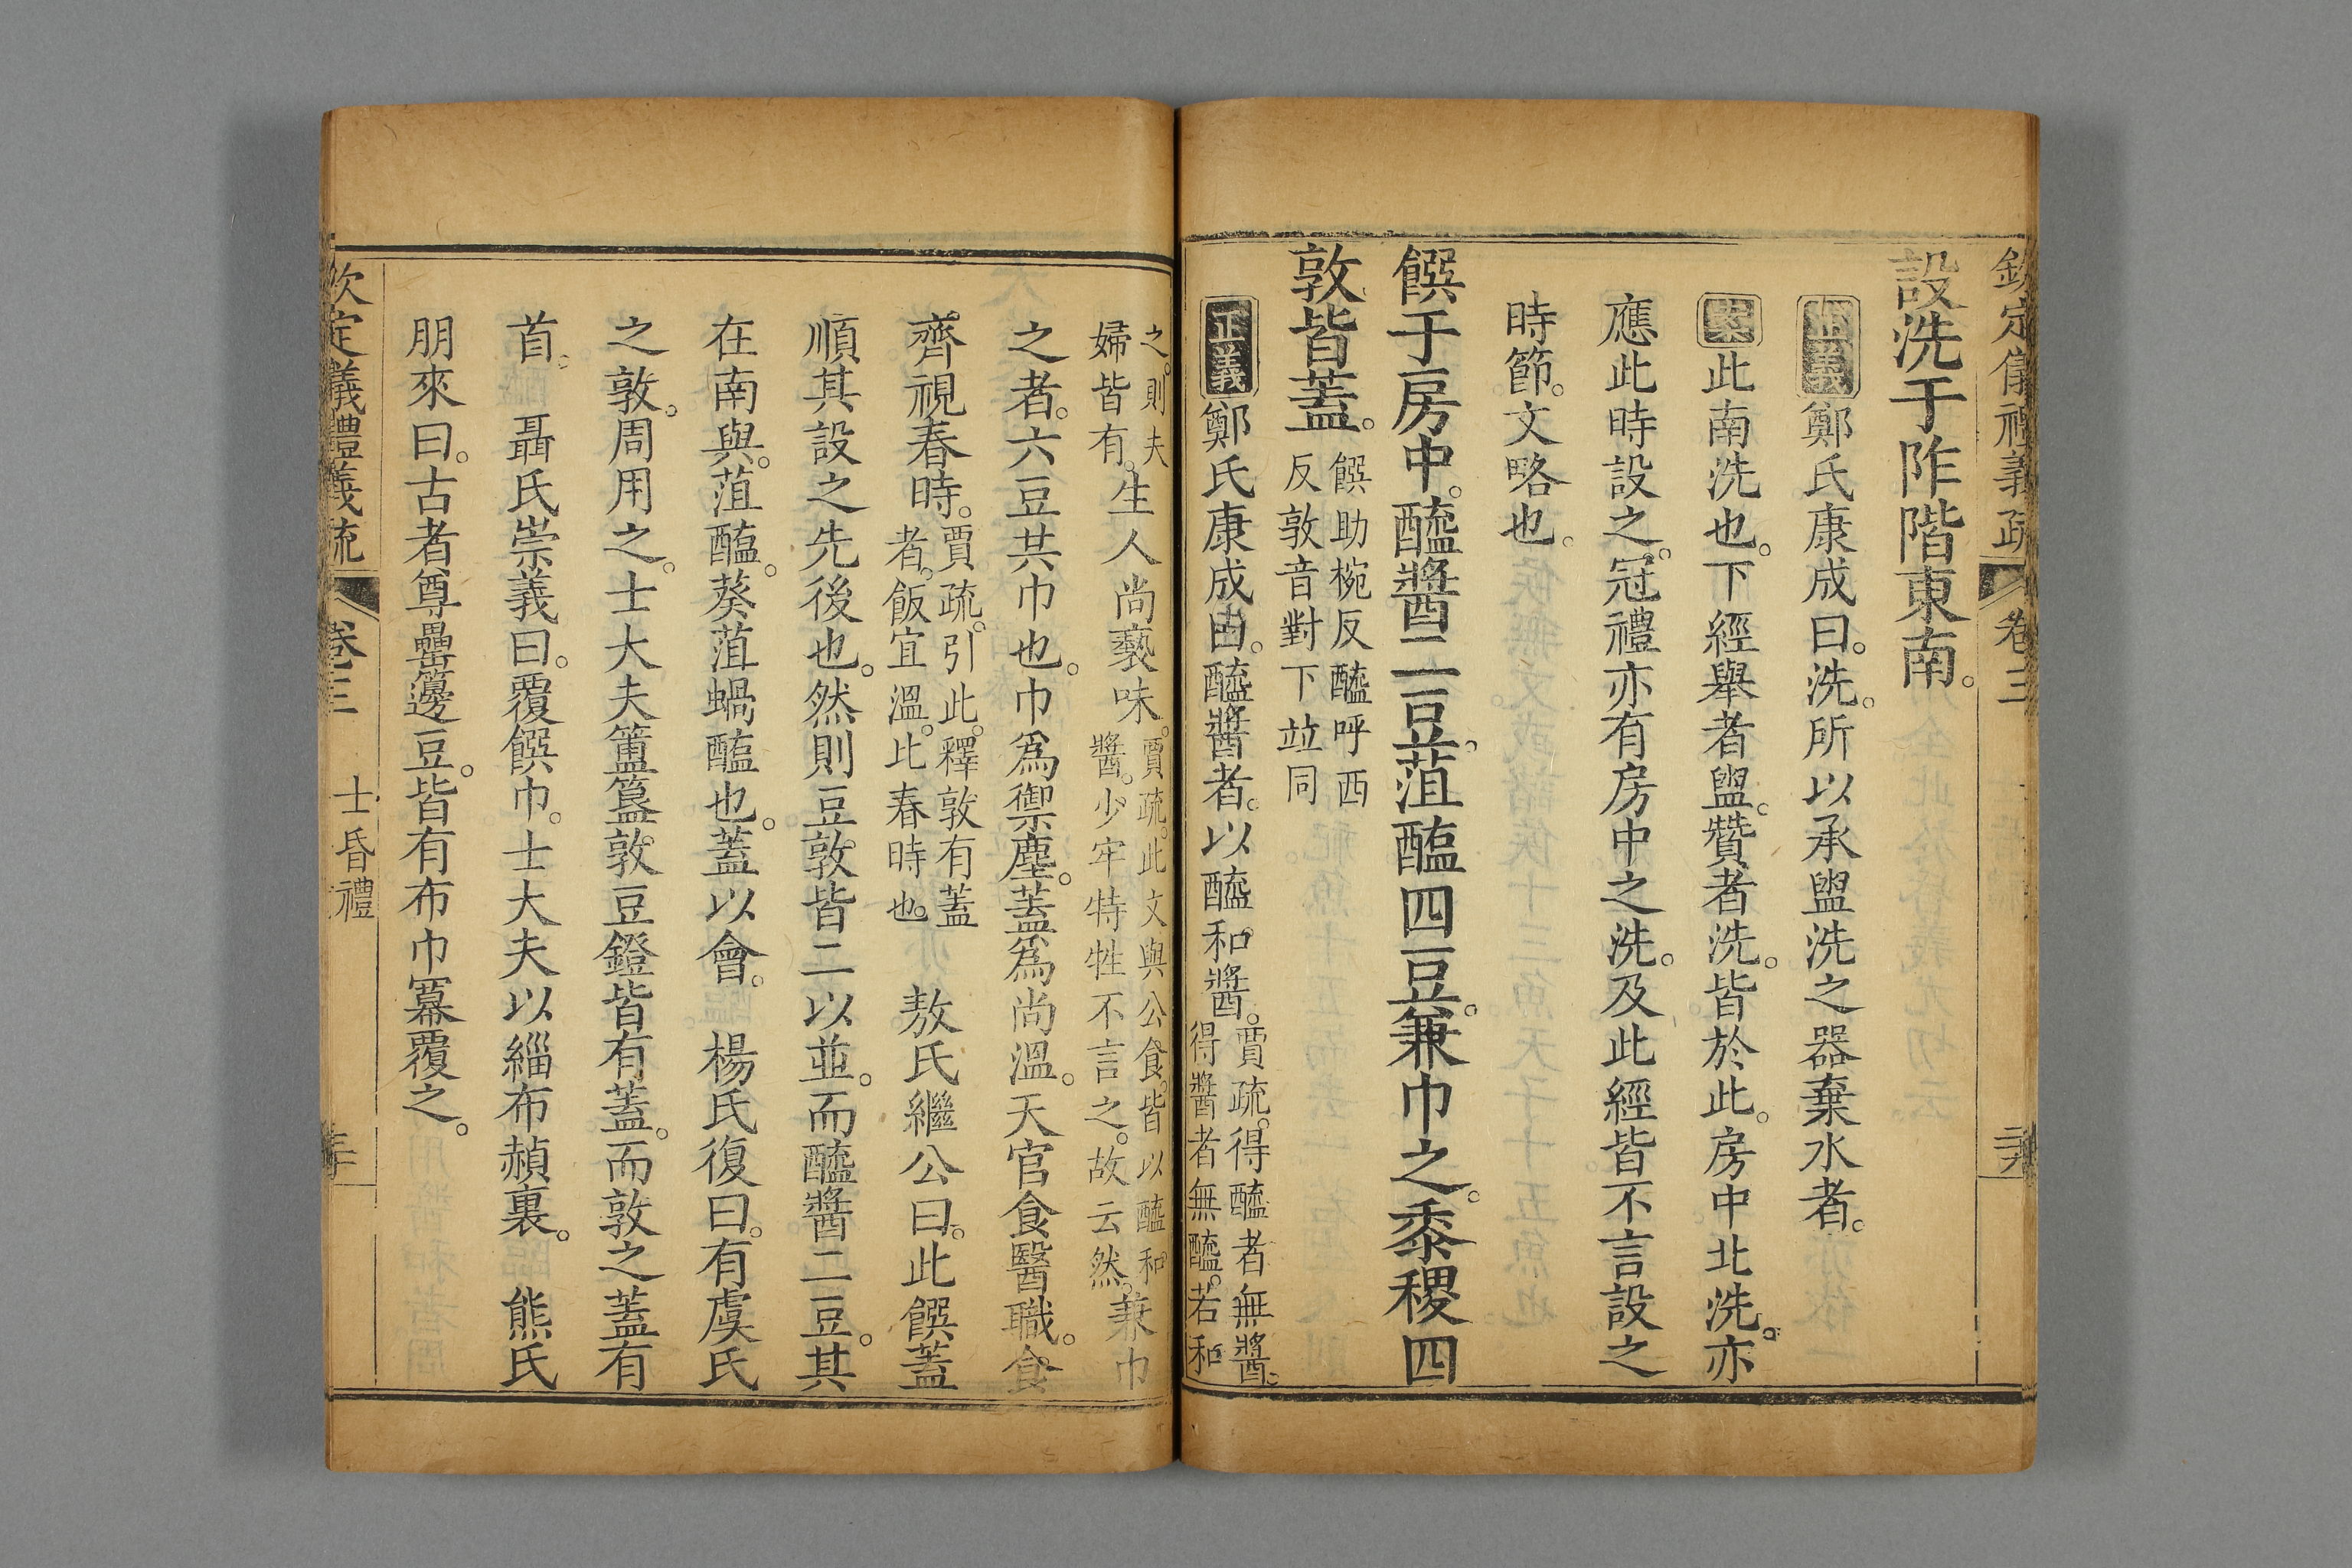 欽定儀禮義疏 卷三
設洗于阼階東南。
正義鄭氏康成曰。洗。所以承盥洗之器棄水者。
案此南洗也。下經舉者盥。贊者洗。皆於此。房中北洗。亦
應此時設之。冠禮亦有房中之洗。及此經皆不言設之
時節。文略也。
饌于房中。醯醬二豆。菹醢四豆。兼巾之。黍稷四
敦皆蓋。饌助椀反醯呼西
反敦音對下竝同
正義鄭氏康成曰。醯醬者。以醯和醬。賈疏。得醯者無醬。
得醬者無醯。若和
之。則夫
婦皆有。生人尚褻味。賈疏。此文與公食。皆以醯和
醬。少牢特牲不言之。故云然。兼巾
之者。六豆共巾也。巾爲禦塵。蓋爲尚溫。天官食醫職。食
齊視春時。賈疏。引此。釋敦有蓋
者。飯宜溫。比春時也。 敖氏繼公曰。此饌蓋
順其設之先後也。然則豆敦皆二以並。而醯醬二豆。其
在南與。菹醢。葵菹蝸醢也。蓋以會。 楊氏復曰。有虞氏
之敦。周用之。士大夫簠簋敦豆鐙皆有蓋。而敦之蓋有
首。 聶氏崇義曰。覆饌巾。士大夫以緇布赬裏。 熊氏
朋來曰。古者尊罍籩豆。皆有布巾冪覆之。
欽定儀禮義疏 卷三 士昏禮